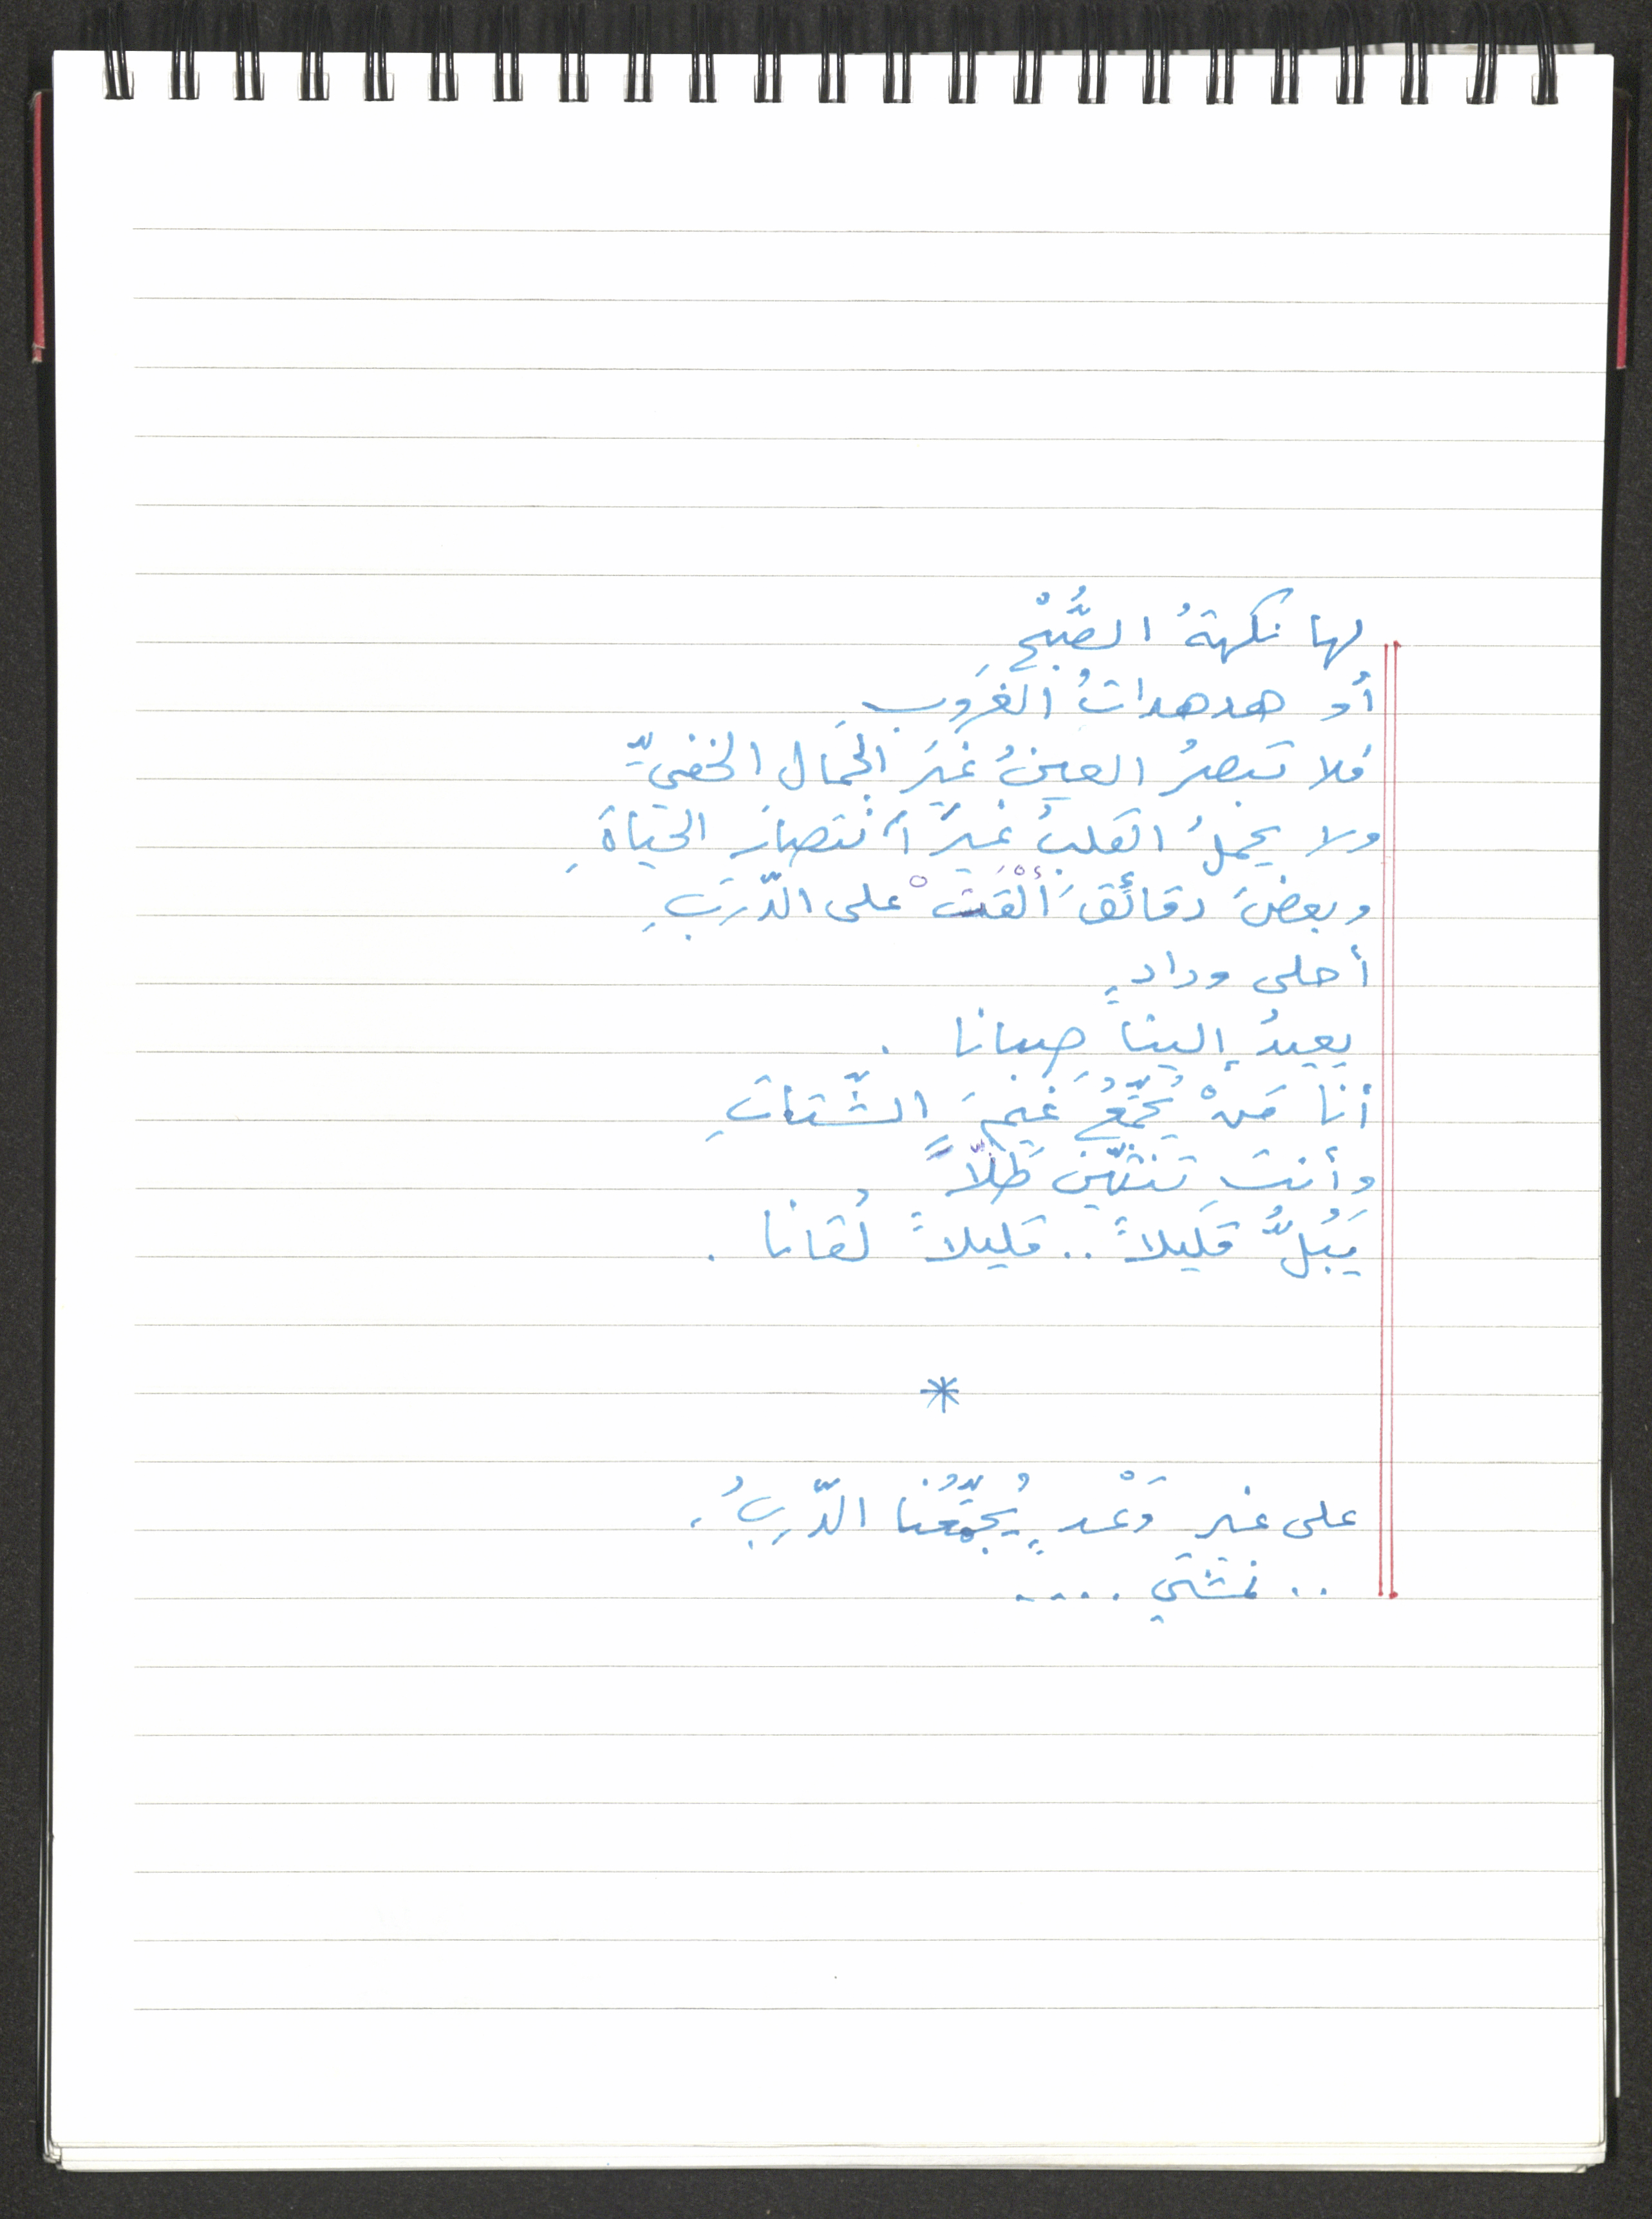 لها نكهةُ الصُّبْحِ
أو هدهداتُ الغروبِ
فلا تبصرُ العينُ غيرَ الجمال الخفيّ
ولا يحملُ القلبُ غيرَ انتصارِ الحياةِ
وبعضَ دقائقَ ألْقَتْ على الدّربِ
أحلى ودادٍ
يعيدُ إلينا صِبانا .
أنا مَنْ يُجَمِّعُ غيمَ الشّتاتِ
وأنتِ تَنثّينَ طَلّاً
يَبُلُّ قليلاً .. قليلاً لُقانا .
*
على غير وَعْدٍ يُجَمِّعُنا الدّربُ .
.. نمشي ....